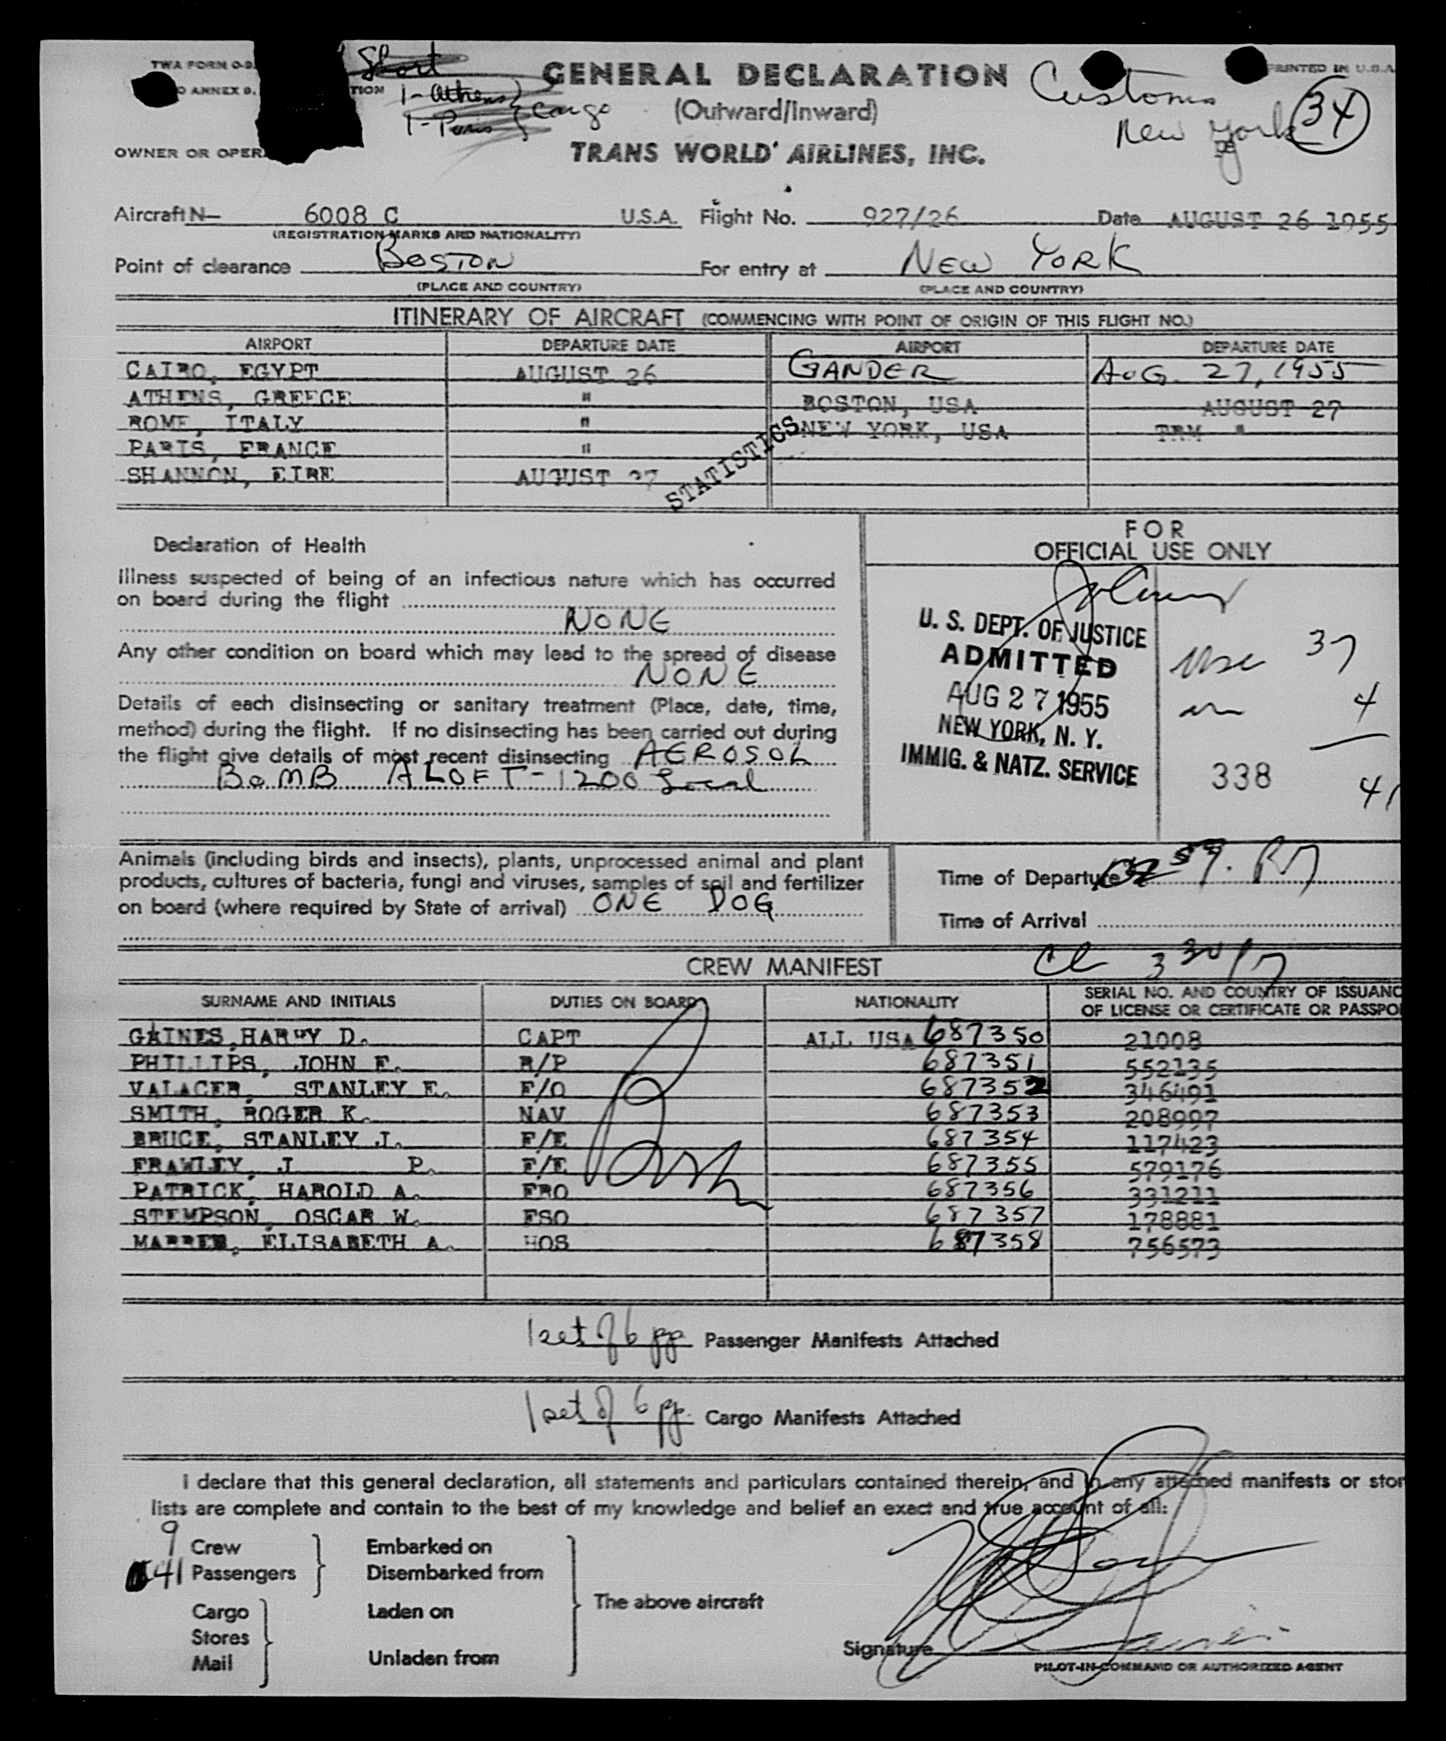 TWA FORM O-9
Short
GENERAL DECLARATION
Customs
PRINTED IN U.S.A.
O ANNEX 9,
1-Athens
1-Paris } Cargo
(Outward/Inward)
New York
34
OWNER OR OPER
TRANS WORLD AIRLINES, INC.
Aircraft N- 6008 C U.S.A. Flight No. 927/26 Date AUGUST 26 1955
(REGISTRATION MARKS AND NATIONALITY)
Point of clearance BOSTON For entry at NEW YORK
(PLACE AND COUNTRY) (PLACE AND COUNTRY)
ITINERARY OF AIRCRAFT (COMMENCING WITH POINT OF ORIGIN OF THIS FLIGHT NO.)
AIRPORT DEPARTURE DATE AIRPORT DEPARTURE DATE
CAIRO, EGYPT AUGUST 26 GANDER AUG. 27, 1955
ATHENS, GREECE " BOSTON, USA AUGUST 27
ROME, ITALY " NEW YORK, USA TRM "
PARIS, FRANCE "
SHANNON, EIRE AUGUST 27
STATISTICS
Declaration of Health
Illness suspected of being of an infectious nature which has occurred
on board during the flight
NONE
Any other condition on board which may lead to the spread of disease
NONE
Details of each disinsecting or sanitary treatment (Place, date, time,
method) during the flight. If no disinsecting has been carried out during
the flight give details of most recent disinsecting AEROSOL
BOMB ALOFT-1200 Local
FOR
OFFICIAL USE ONLY
U. S. DEPT. OF JUSTICE
ADMITTED
AUG 27 1955
NEW YORK, N. Y.
IMMIG. & NATZ. SERVICE
usc 37
4
338
41
Animals (including birds and insects), plants, unprocessed animal and plant
products, cultures of bacteria, fungi and viruses, samples of soil and fertilizer
on board (where required by State of arrival) ONE DOG
Time of Departure
Time of Arrival
CREW MANIFEST
SURNAME AND INITIALS DUTIES ON BOARD NATIONALITY SERIAL NO. AND COUNTRY OF ISSUANC
OF LICENSE OR CERTIFICATE OR PASSPO
GAINES, HARRY D. CAPT ALL USA 687350 21008
PHILLIPS, JOHN F. R/P 687351 552135
VALACER, STANLEY E. F/O 687352 346491
SMITH, ROGER K. NAV 687353 208997
BRUCE, STANLEY J. F/E 687354 117423
FRAWLEY, J P. F/E 687355 579176
PATRICK, HAROLD A. FRO 687356 331211
STEMPSON, OSCAR W. FSO 687357 178881
ELISABETH A. HOS 687358 756573
1 set of 6 pp. Passenger Manifests Attached
1 set of 6 pp. Cargo Manifests Attached
I declare that this general declaration, all statements and particulars contained therein, and in any attached manifests or stor
lists are complete and contain to the best of my knowledge and belief an exact and true account of all:
9 Crew
41 Passengers
Embarked on
Disembarked from
Cargo
Stores
Mail
Laden on
Unladen from
The above aircraft
Signature
PILOT-IN-COMMAND OR AUTHORIZED AGENT